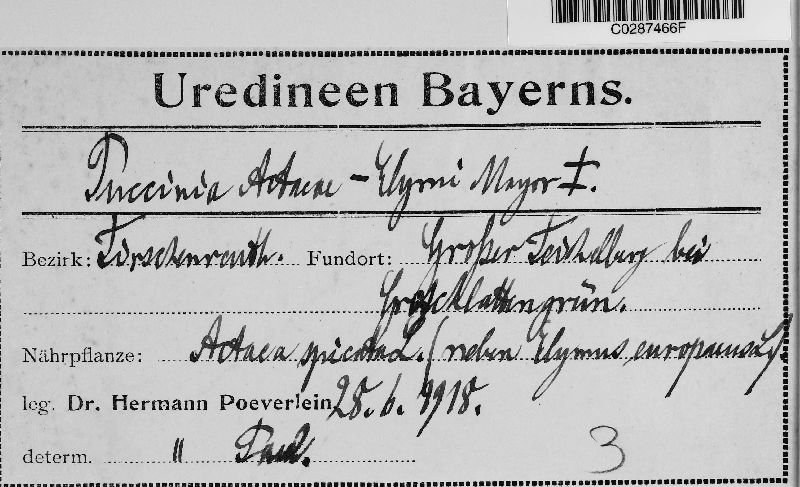 C0287466F
Uredineen Bayerns.
Puccinia Actaeae – Elymi Mayor I.
Bezirk: Tirschenreuth. Fundort: Großer Teichelberg bei
Großklattengrün.
Nährpflanze: Actaea spicata L. (neben Elymus europaeus L.).
leg. Dr. Hermann Poeverlein 28. 6. 1918.
determ. "
3